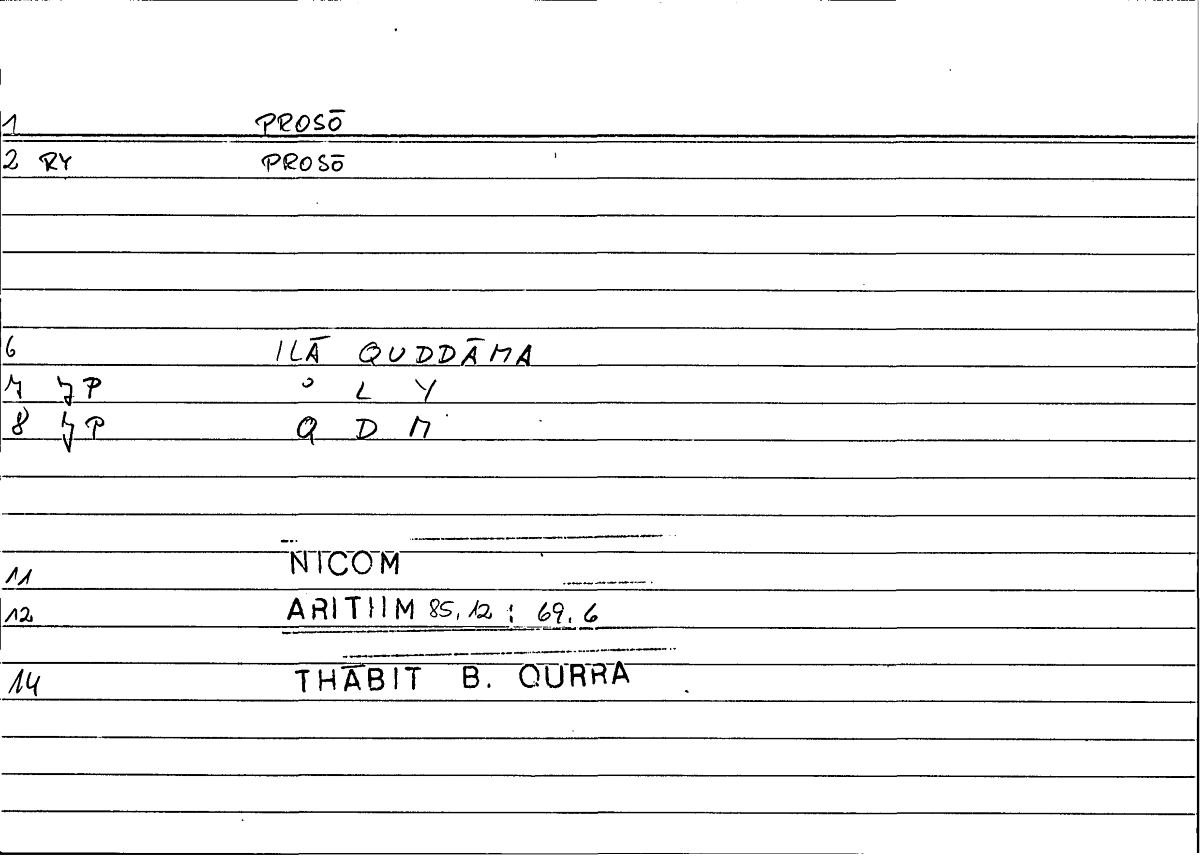 1 PROSŌ
2 RY PROSŌ
6 ILĀ QUDDĀMA
7 JP ʾ L Y
8 JP Q D M
11 NICOM
12 ARITHM 85,12 ; 69,6
14 THĀBIT B. QURRA